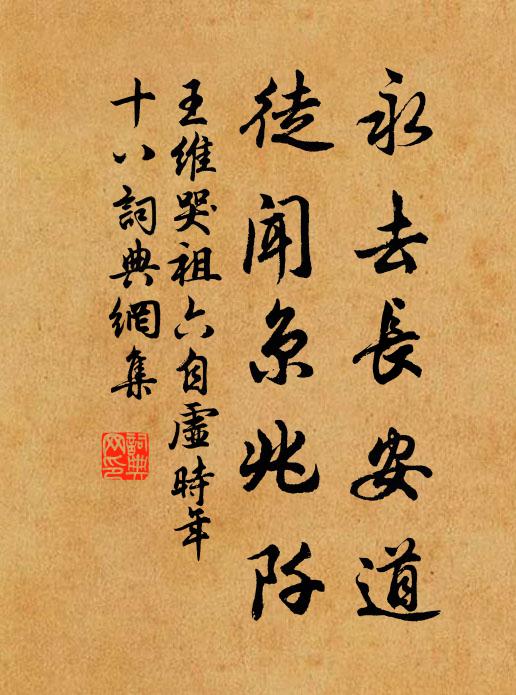 永去長安道
徒聞京兆阡
王維哭祖六自虛時年
十八詞典網集
詞典
网印